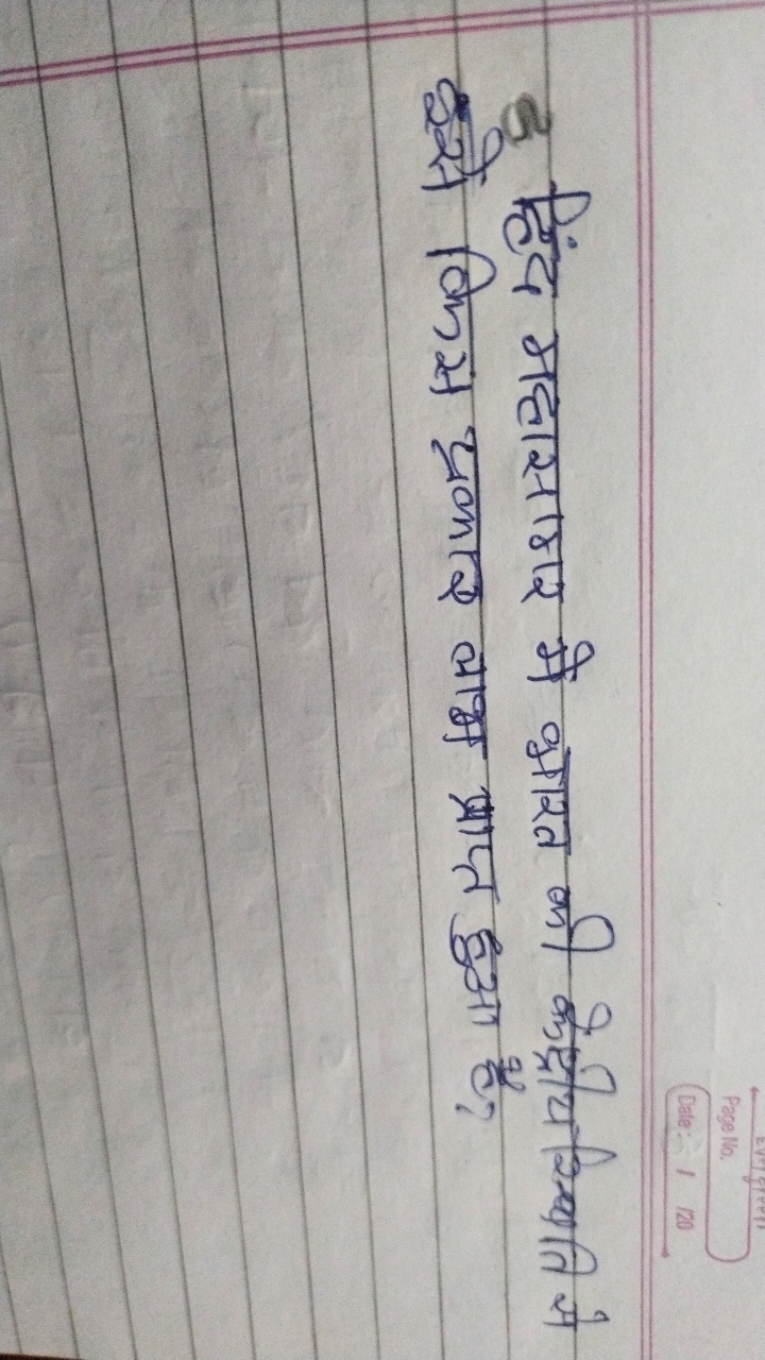 Page No.
Date: / /20
हिंद महासागर में भारत की केंद्रीय स्थिति से
इसे किस प्रकार लाभ प्राप्त हुआ है?